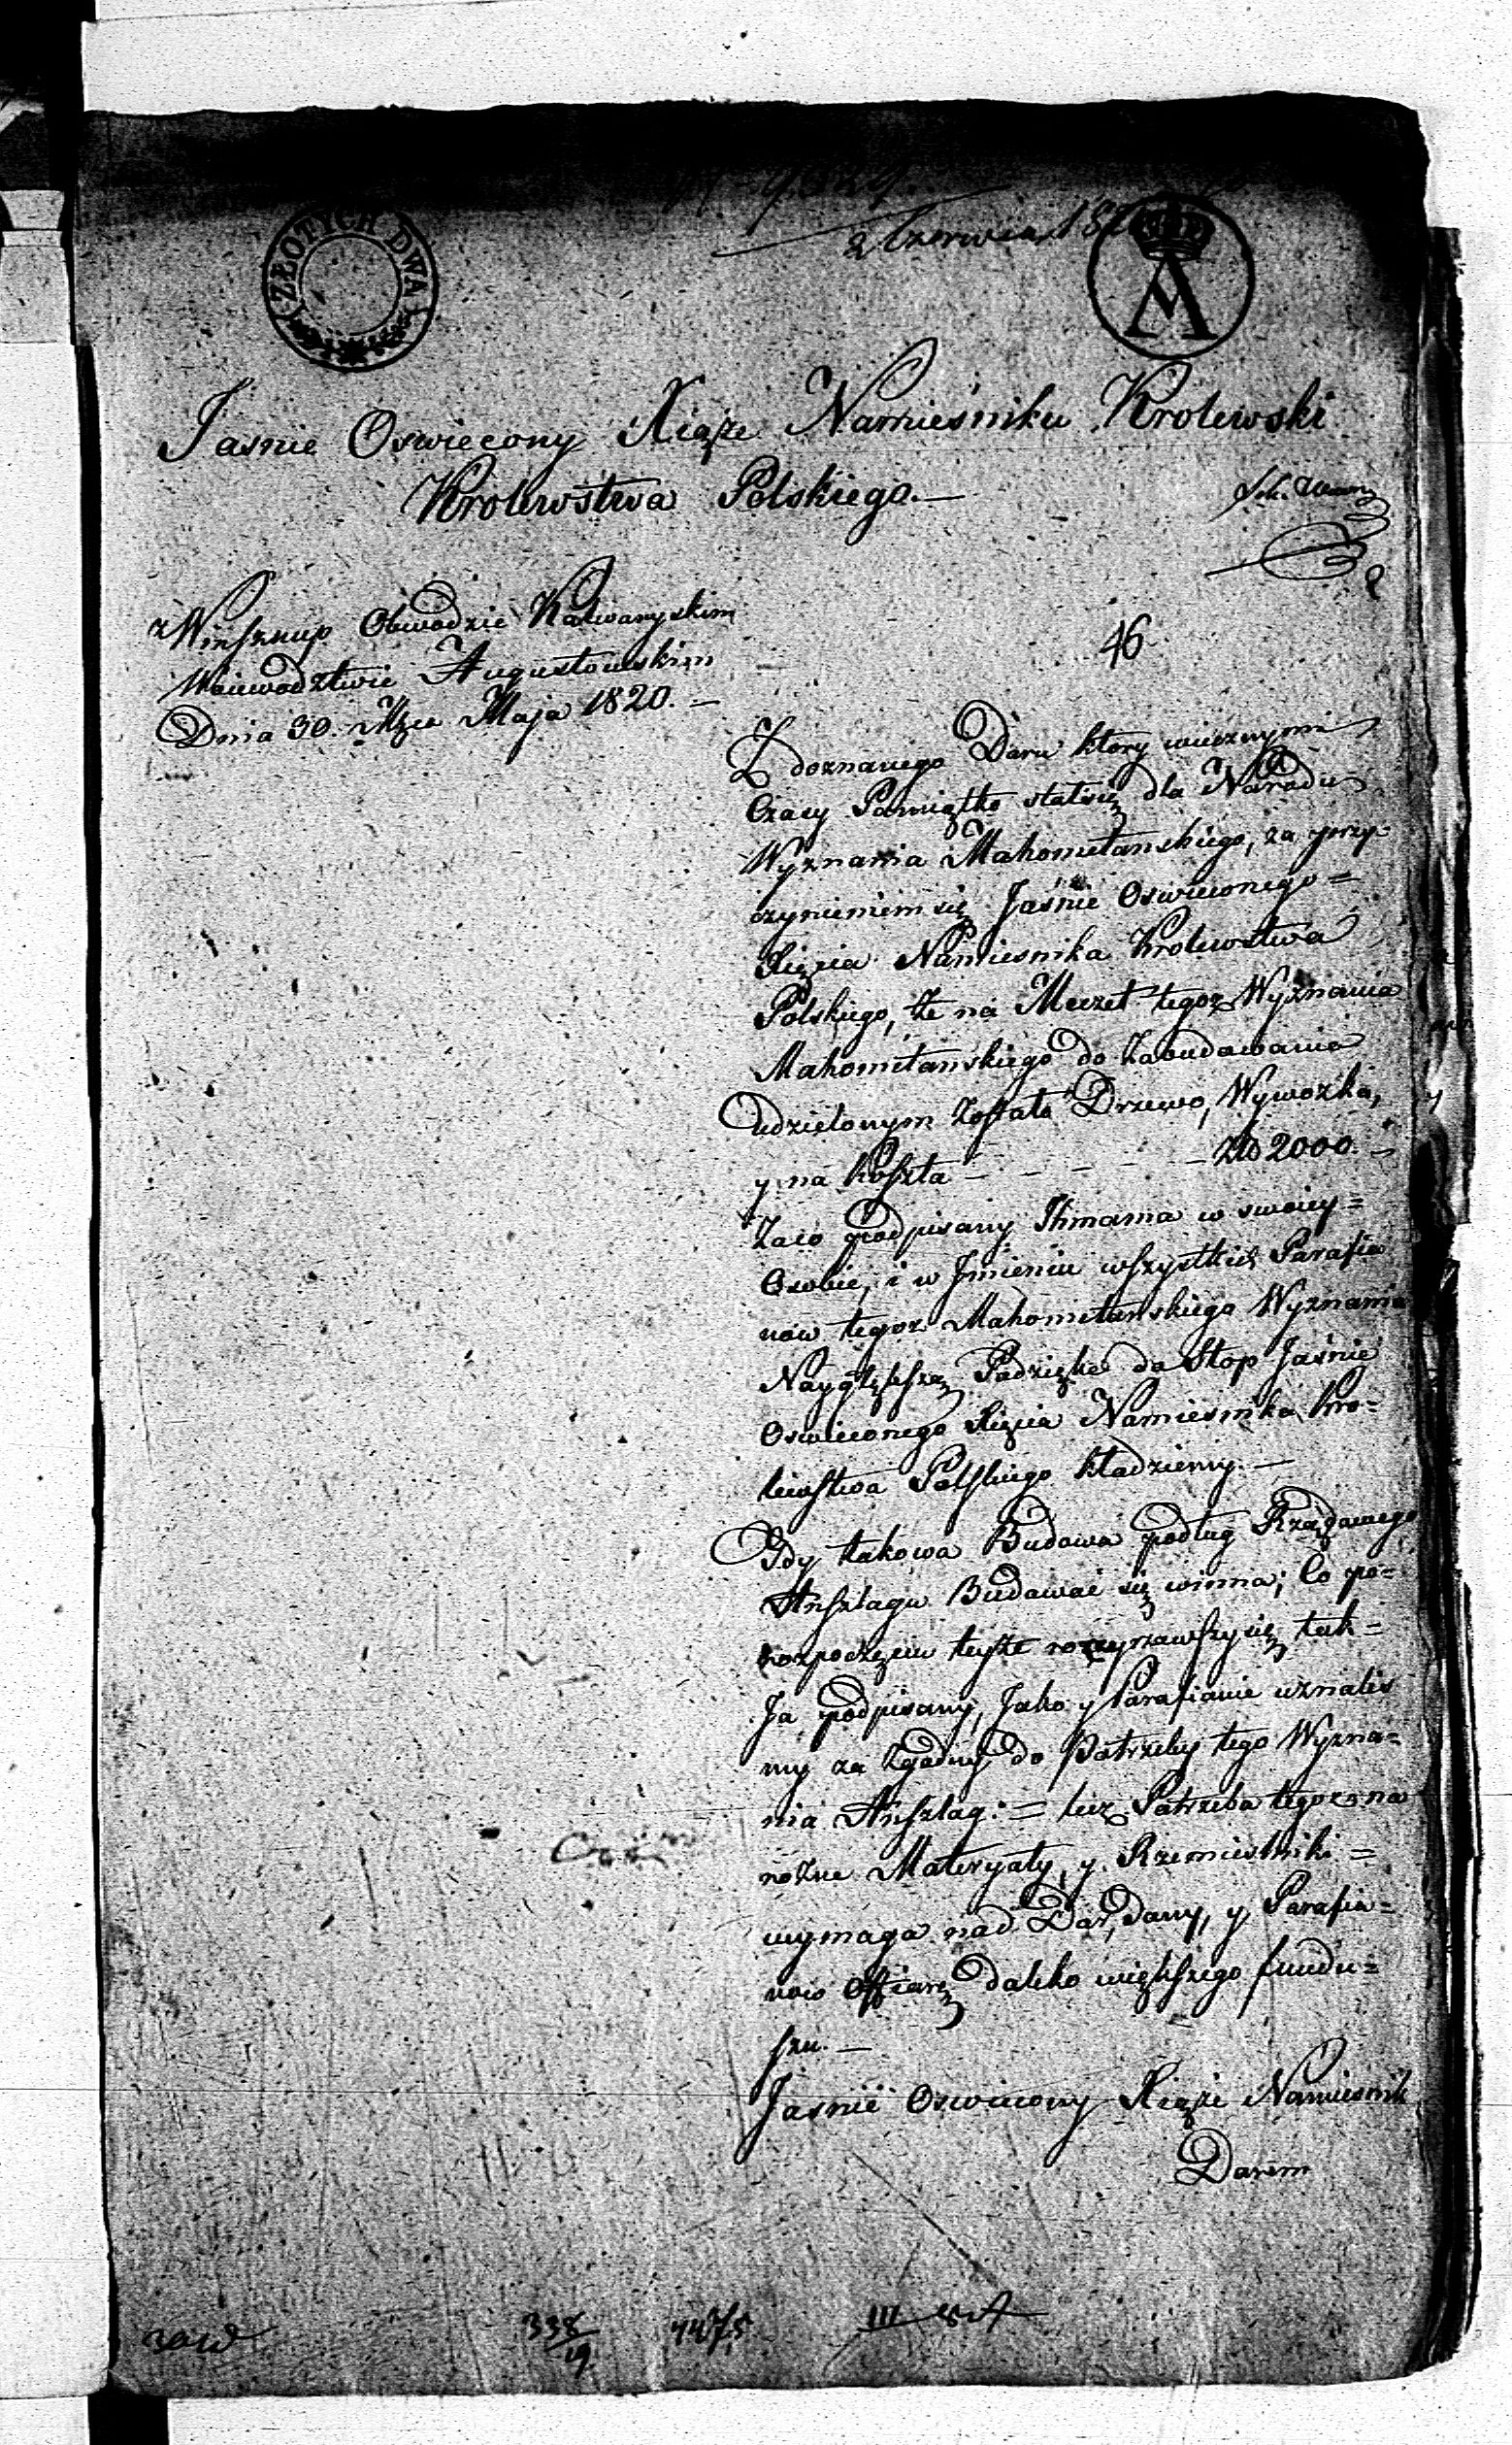 9329.
2 Czerwca 18
ZŁOTYCH DWA
Jasnie Oswiecony Xiąże Namieśniku Krolewski
Krolewstwa Polskiego.—
z Winsznup Obwodzie Kalwaryskim
Woiewodztwie Augustowskim
Dnia 30. Mca Maja 1820. =
46.
Z doznanego Daru ktory wiecznymi
Czasy Pamiątko stałsię dla Narodu
Wyznania Mahometanskiego, za przy=
czynieniem się Jaśnie Oswieconego =
Xięcia Namiesnika Krolewstwa
Polskiego, że na Meczet tegoz Wyznania
Mahometanskiego do Zabudowania
Udzielonym Zostało Drzewo, Wywozka,
y na Koszta - - - - - Złło 2000. -
Zaco podpisany Jhmama w swoiey =
Osobie, i w Jmieniu wszystkich Parafia
now tegoz Mahometanskiego Wyznania
Naygłębszą Padziękę do Stop Jaśnie
Oswieconego Xięcia Namiesnika Kro=
lewstwa Polskiego kładziemy. —
Gdy takowa Budowa podług Rządowego
Anszlagu Budować się winna; Co po=
rozpoczęciu teyże rozpzawszy się tak =
Ja podpisany, Jako y Parafianie uznalis
my za Zgodny do Potrzeby tego Wyzna=
nia Anszlag: = lecz Potrzeba tegoz na
rożne Materyały, y Rzemieslniki =
wymaga nad Dar, dany, y Parafia=
now offiarę daleko większego fundu=
szu. —
Jasnie Oswiecony Xiąże Namiesnik
Darem
338/19
4475
III